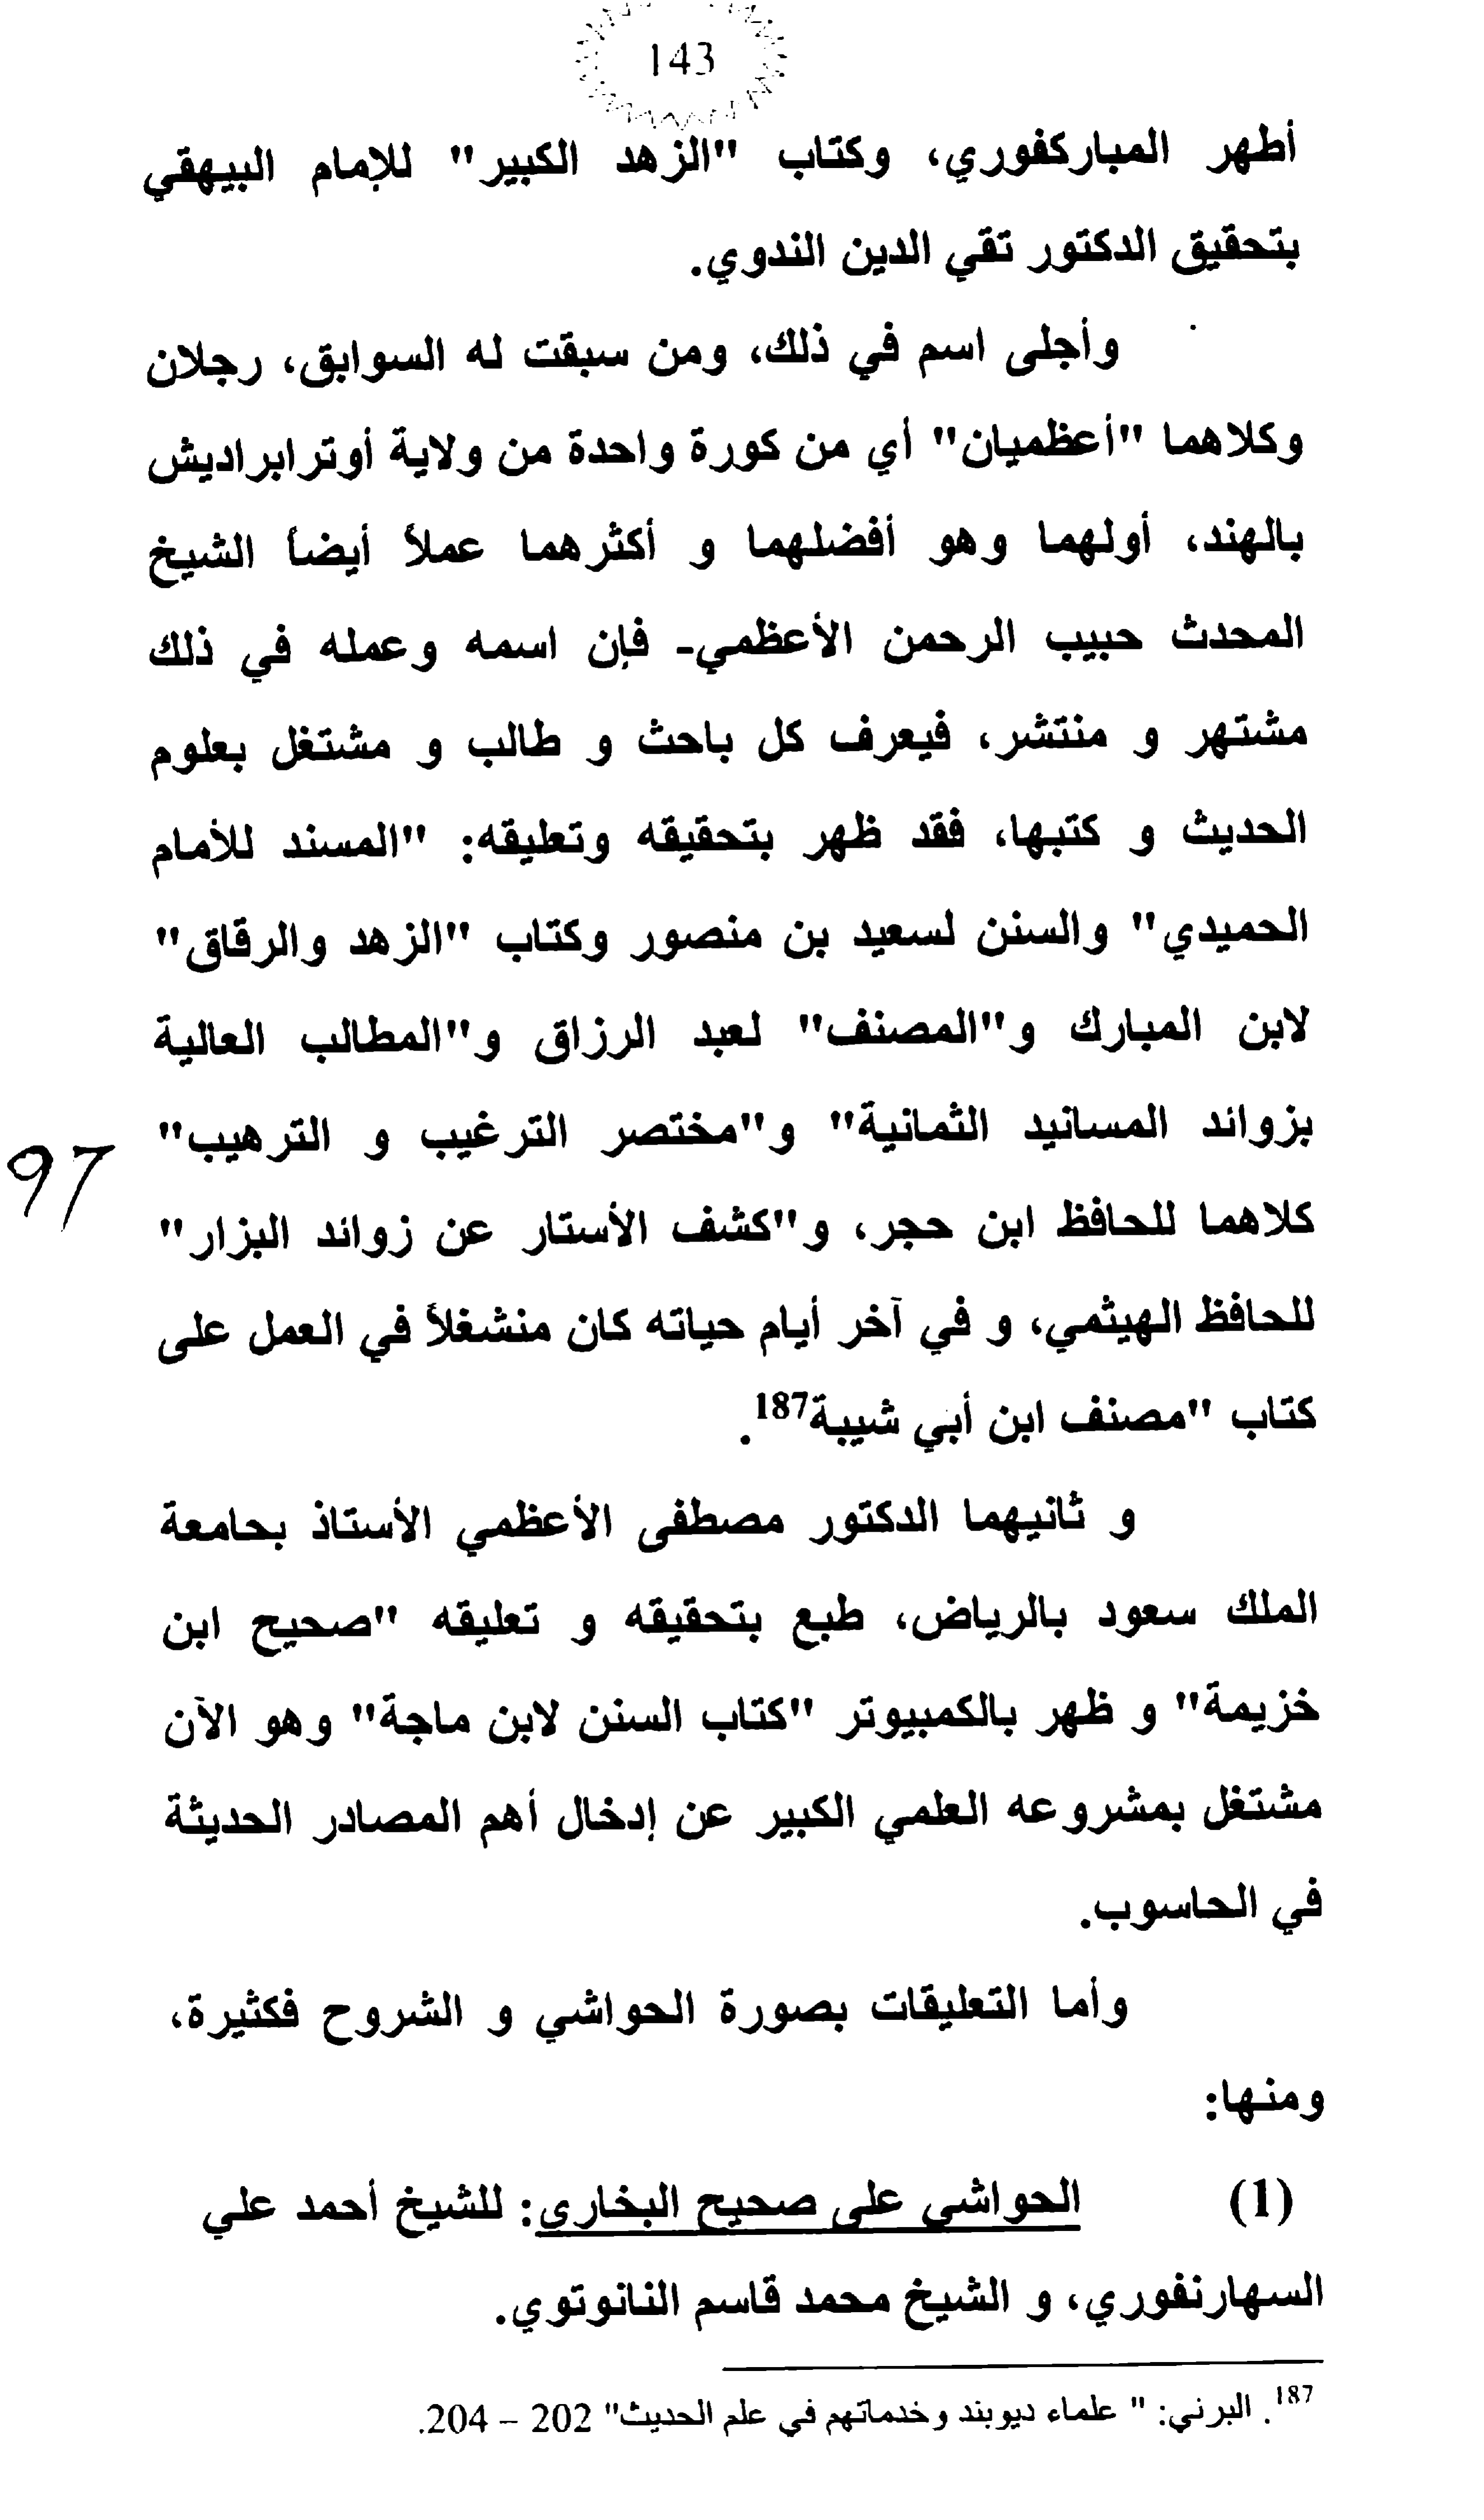 143
أطهر المباركفوري، وكتاب "الزهد الكبير" للإمام البيهقي
بتحقيق الدكتور تقي الدين الندوي.
وأجلى اسم في ذلك، ومن سبقت له السوابق، رجلان
وكلاهما "أعظميان" أي من كورة واحدة من ولاية أوترابراديش
بالهند، أولهما وهو أفضلهما و أكثرهما عملاً أيضاً الشيخ
المحدث حبيب الرحمن الأعظمي- فإن اسمه وعمله في ذلك
مشتهر و منتشر، فيعرف كل باحث و طالب و مشتغل بعلوم
الحديث و كتبها، فقد ظهر بتحقيقه وتعليقه: "المسند للأمام
الحميدي" والسنن لسعيد بن منصور وكتاب "الزهد والرقاق"
لابن المبارك و"المصنف" لعبد الرزاق و"المطالب العالية
بزوائد المسانيد الثمانية" و"مختصر الترغيب و الترهيب"
97
كلاهما للحافظ ابن حجر، و"كشف الأستار عن زوائد البزار"
للحافظ الهيثمي، و في آخر أيام حياته كان منشغلاً في العمل على
كتاب "مصنف ابن أبي شيبة187.
و ثانيهما الدكتور مصطفى الأعظمي الأستاذ بجامعة
الملك سعود بالرياض، طبع بتحقيقه و تعليقه "صحيح ابن
خزيمة" و ظهر بالكمبيوتر "كتاب السنن لابن ماجة" وهو الآن
مشتغل بمشروعه العلمي الكبير عن إدخال أهم المصادر الحديثة
في الحاسوب.
وأما التعليقات بصورة الحواشي و الشروح فكثيرة،
ومنها:
(1) الحواشي على صحيح البخاري: للشيخ أحمد علي
السهارنفوري، و الشيخ محمد قاسم النانوتوي.
187. البرني: " علماء ديوبند وخدماتهم في علم الحديث" 202 – 204.